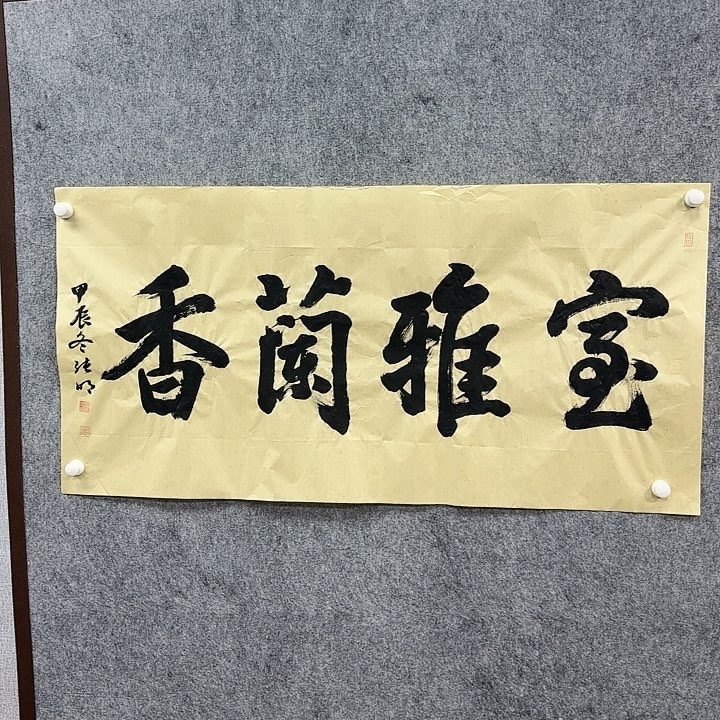 室雅蘭香
甲辰冬张明